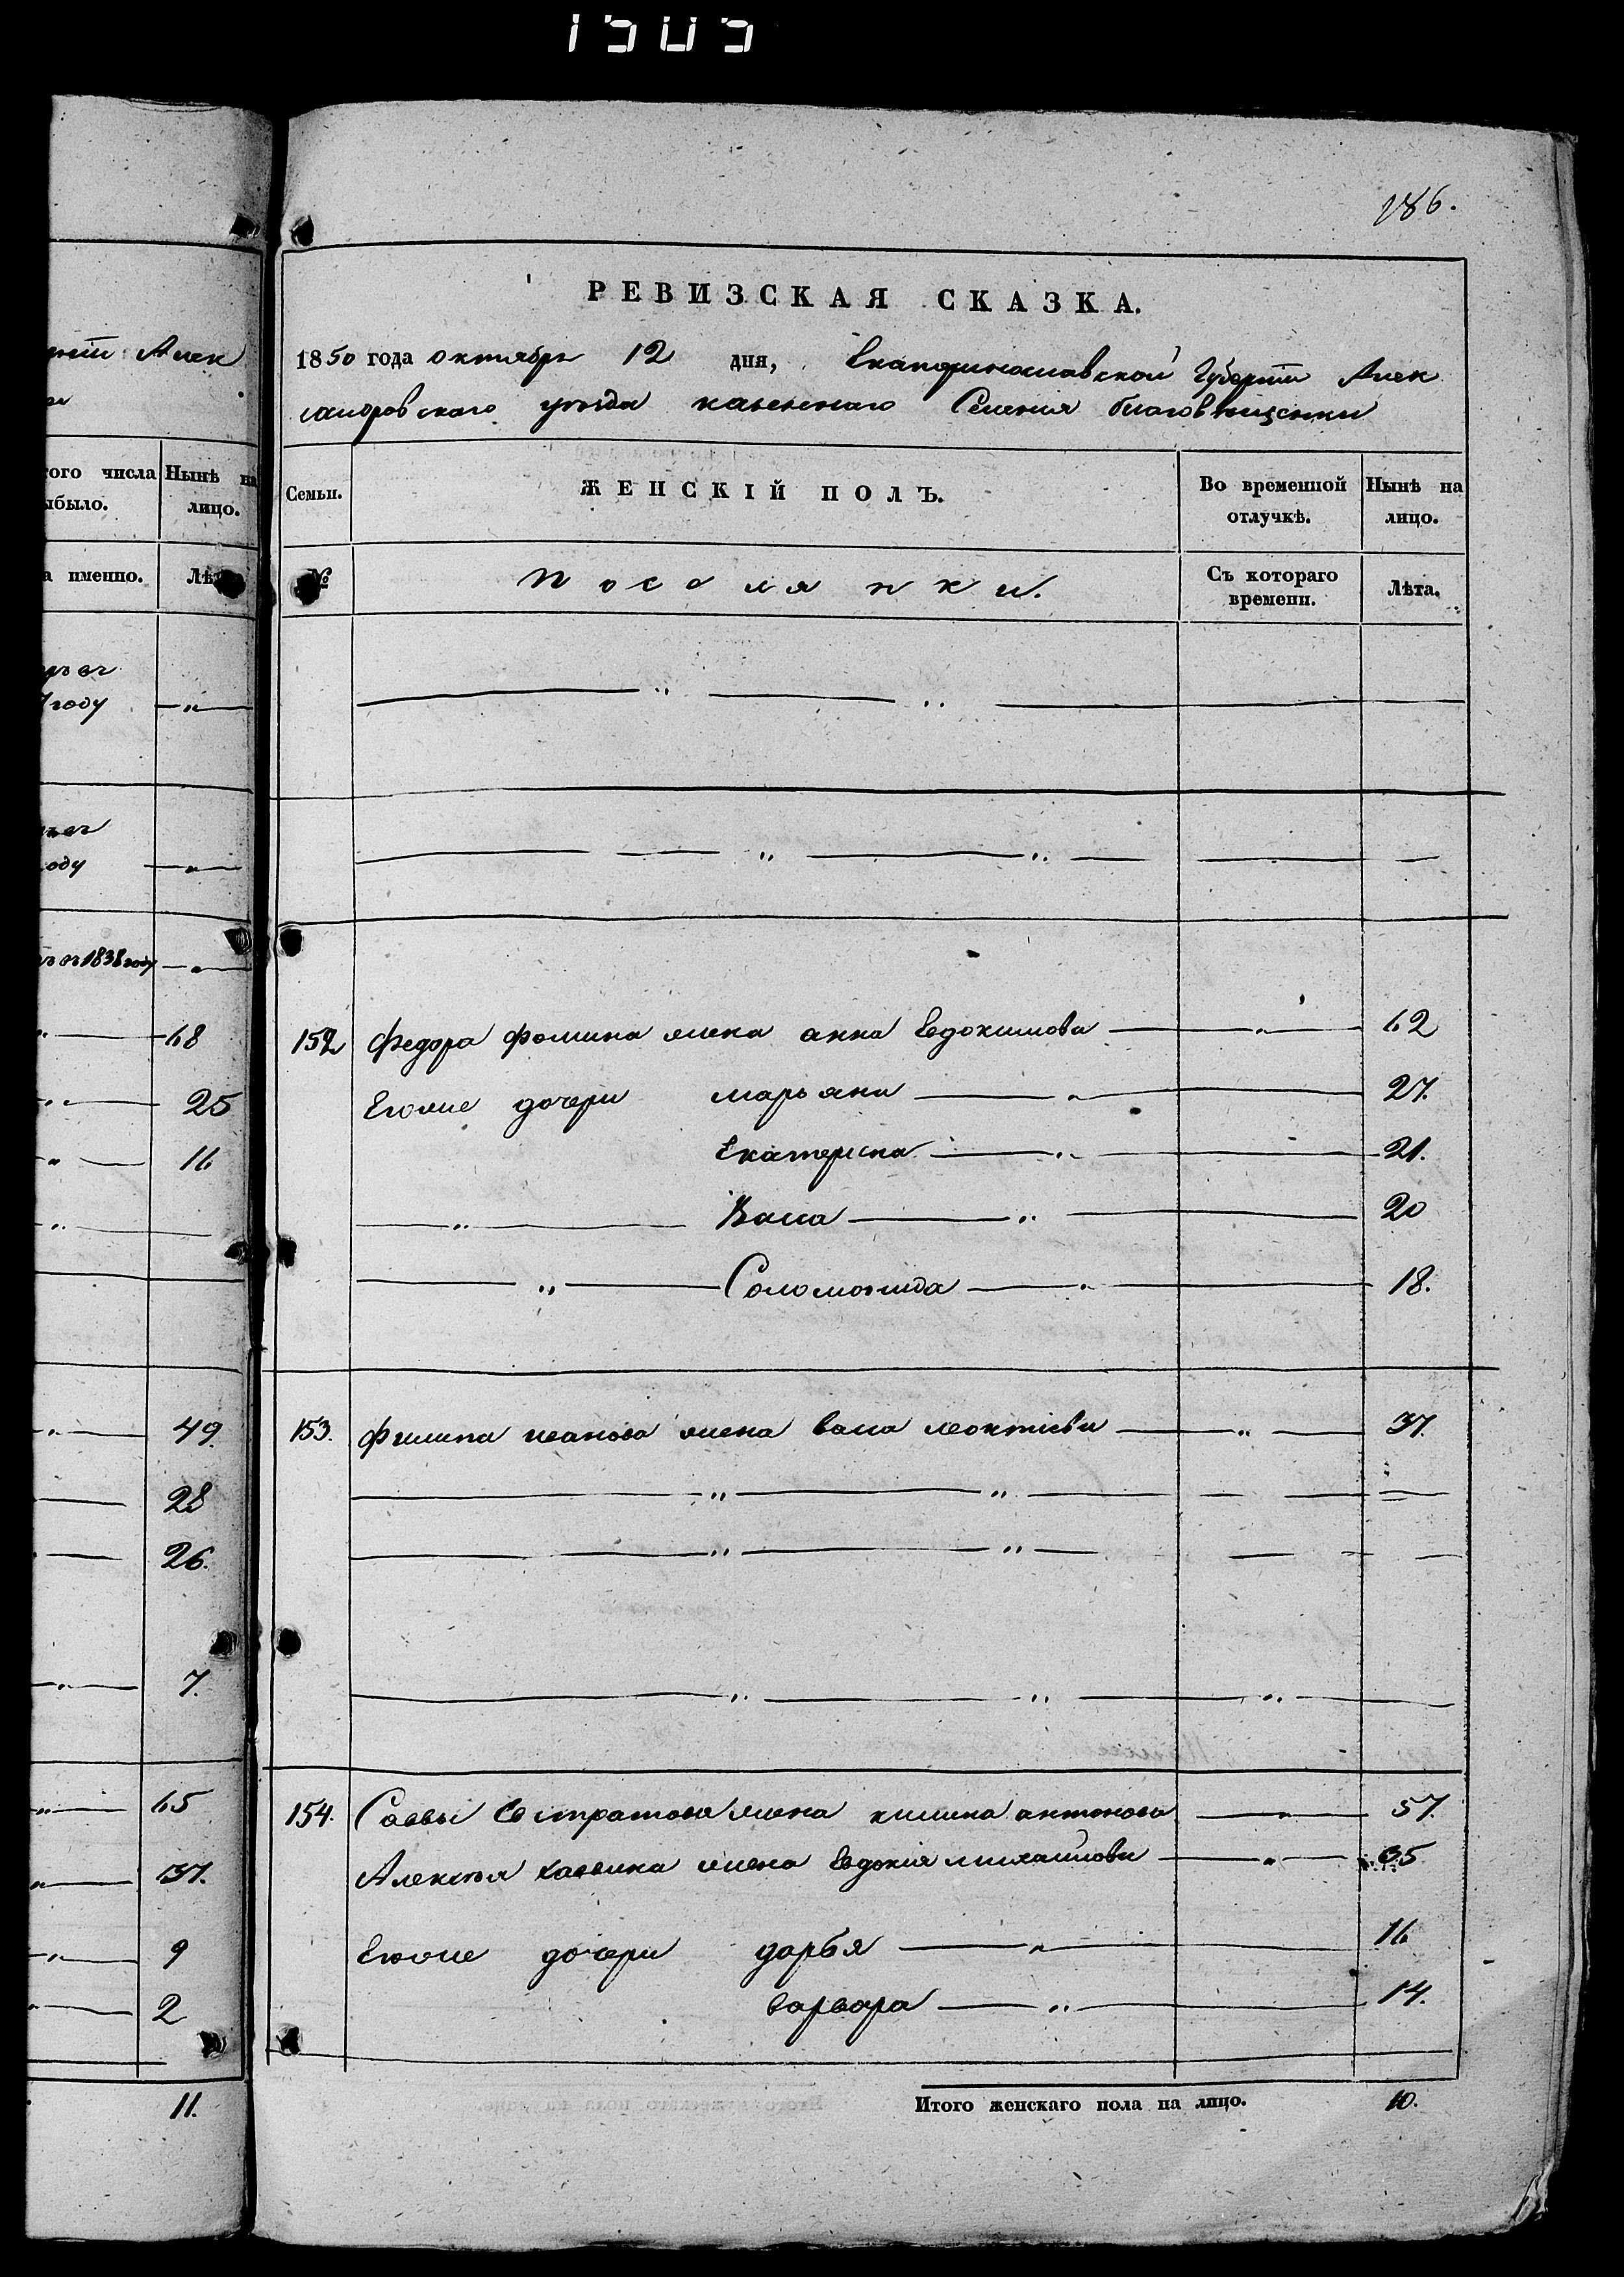 1505
186.
РЕВИЗСКАЯ СКАЗКА.
1850 года октября 12 дня, Екатеринославской Губерніи Алек
сандровского уезда казенного Селения благовещенки
Семьи. ЖЕНСКІЙ ПОЛЪ. Во временной отлучкѣ. Нынѣ на лицо.
№ Поселянки. Съ котораго времени. Лѣта.
152 Федора Фомина жена анна Евдокимова — „ — 62
Егоже дочери марьяна — „ — 27.
Екатерина — „ — 21.
— „ — Васа — „ — 20
— „ — Соломонида — „ — 18.
153. Филипа иванова жена васа — „ — 37.
154. Саввы Евстратова жена килина антонова — „ — 57.
Алексея жена Евдокія михайлова — „ — 35
Егоже дочери дарья — „ — 16
варвара — „ — 14.
Итого женскаго пола на лицо. 10.
ніи Алек
того числа
было.
Нынѣ на
лицо.
а именно. Лѣта
году — „ —
оду — „ —
1838 году — „ —
68
25
16
49.
28
26.
7.
65
37.
9
2
11.